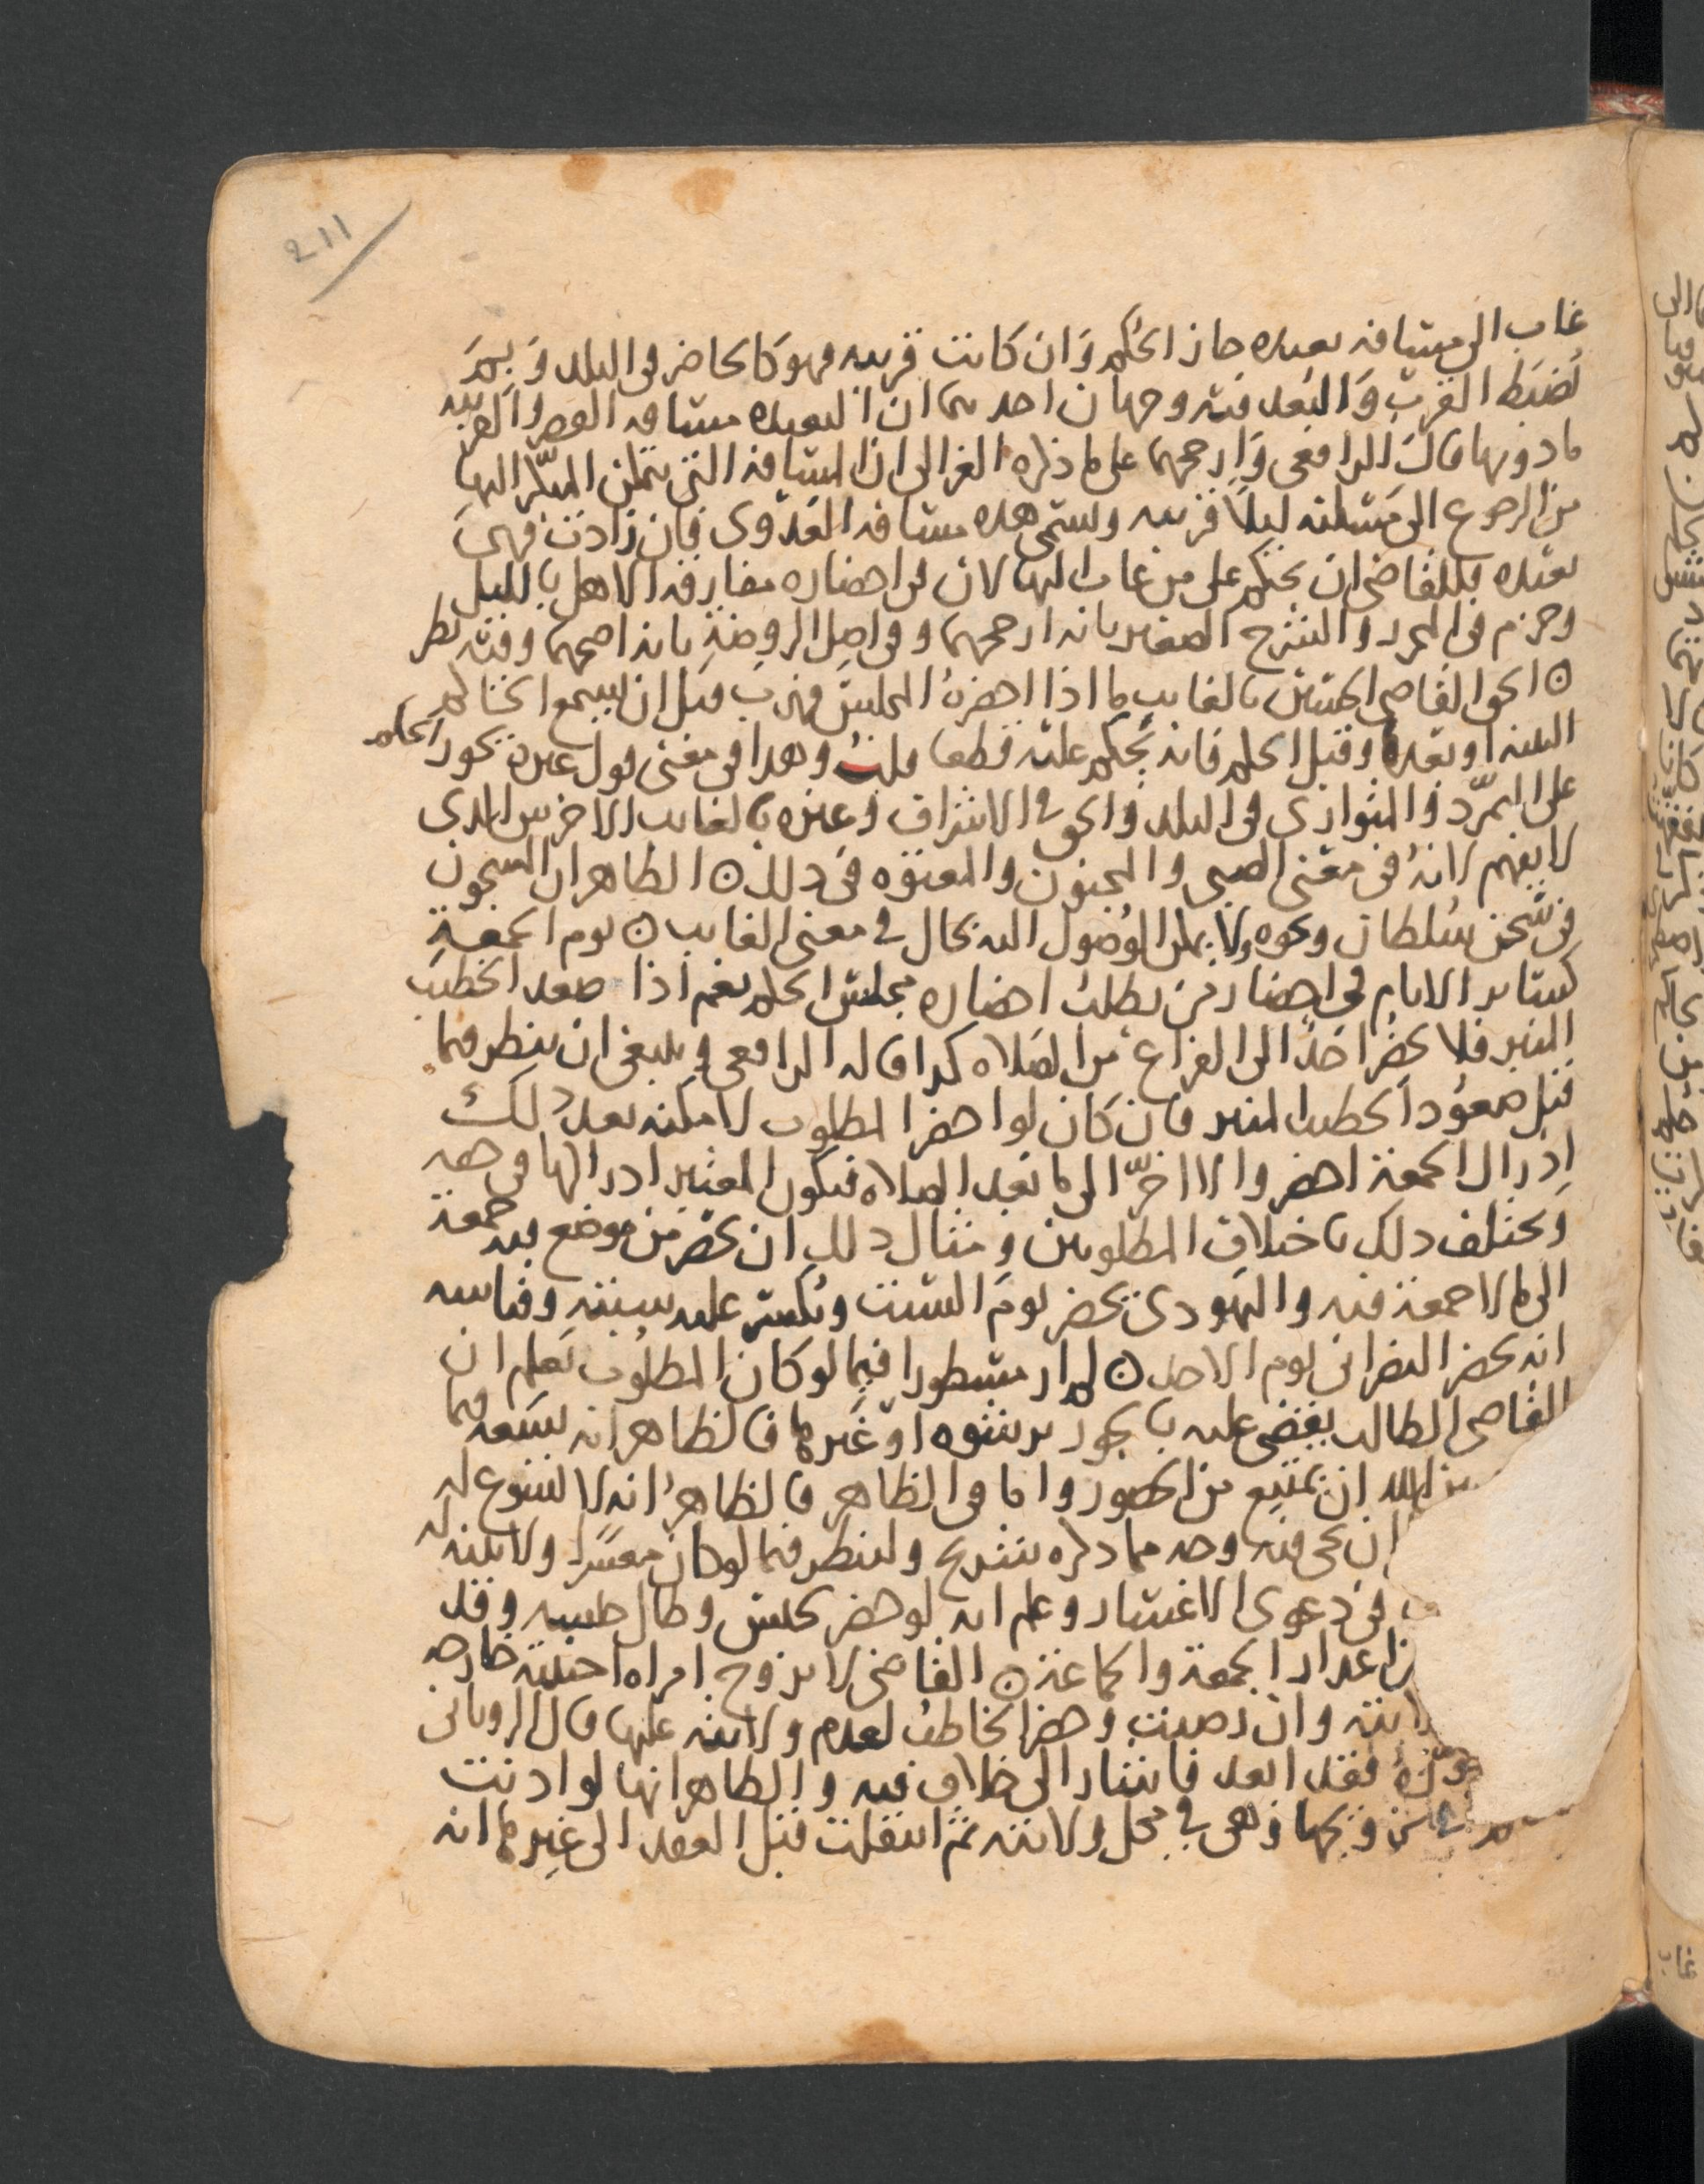 211
غاب الى مسافة بعيدة جاز الحكم وان كانت قريبه فهو كالحاضر في البلد وبم
تضبط القرب والبعد فيه وجهان احدهما ان البعيده مسافه القصر والقريبه
ما دونها قال الرافعي وارجحهما على ما ذكره الغزالي ان المسافة التي يتمكن المبكر اليها
من الرجوع الى مسكنه ليلا قريبه وتسمى هذه مسافة العدوى فان زادت فهي
بعيده فللقاضي ان يحكم على من غاب اليها لان في احضاره مفارقة الاهل بالليل
وجزم في المحرر والشرح الصغير بانه ارجحهما وفي اصل الروضة بانه اصحهما وفيه نظر
الحق القاضي الحسين بالغايب ما اذا احضره المجلس فهرب قبل ان يسمع الحاكم
البينه او بعده وقبل الحكم فانه يحكم عليه قطعا قلت وهذا في معنى قول غيره يجوز الحكم
على المتمرد والمتوارى في البلد والحق في الاشراف وغيره بالغايب الاخرس الذي
لا يفهم لانه في معنى الصبي والمجنون والمعتوه في ذلك الظاهر ان المسجون
في سجن سلطان ونحوه ولا يمكن الوصول اليه بحال في معنى الغايب يوم الجمعة
كساير الايام في احضار من يطلب احضاره مجلس الحكم نعم اذا صعد الخطيب
المنبر فلا يحضر احد الى الفراغ من الصلاه كذا قاله الرافعي وينبغي ان ينظر فيما
قبل صعود الخطيب المنبر فان كان لو احضر المطلوب لامكنه بعد ذلك
ادراك الجمعة احضر والا اخر الى ما بعد الصلاه فيكون المعتبر ادراكها في حقه
ويختلف ذلك باختلاف المطلوبين ومثال ذلك ان يحضر من موضع فيه جمعة
الى ما لا جمعة فيه واليهودي يحضر يوم السبت ويكسر عليه سبته وقياسه
انه يحضر النصراني يوم الاحد لم ار مسطورا فيما لو كان المطلوب يعلم ان
القاضي الطالب يقضي عليه بالجور برشوه او غيرها فالظاهر انه يسعه فيما
الله ان يمتنع من الحضور واما في الظاهر فالظاهر انه لا يسوغ له
ان يجي فيه وجه مما ذكره شريح ولينظر فيما لو كان معسرا ولا بينه له
في دعوى الاعسار وعلم انه لو حضر يحبس وطال حبسه وقد
اعذار الجمعة والجماعة القاضي لا يزوج امراه اجنبية خارجه
وان رضيت وحضر الخاطب لعدم ولايته عليها قال الروياني
فقد ابعد فاشار الى خلاف فيه والظاهر انها لو اذنت
في تزويجها وهي في محل ولايته ثم انتقلت قبل العقد الى غيرها انه